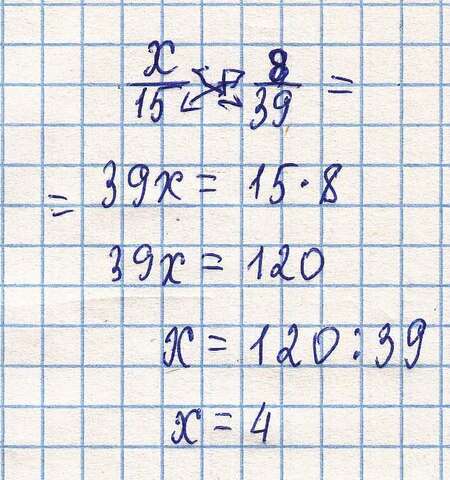 x/15 = 8/39 =
= 39x = 15·8
39x = 120
x = 120:39
x = 4